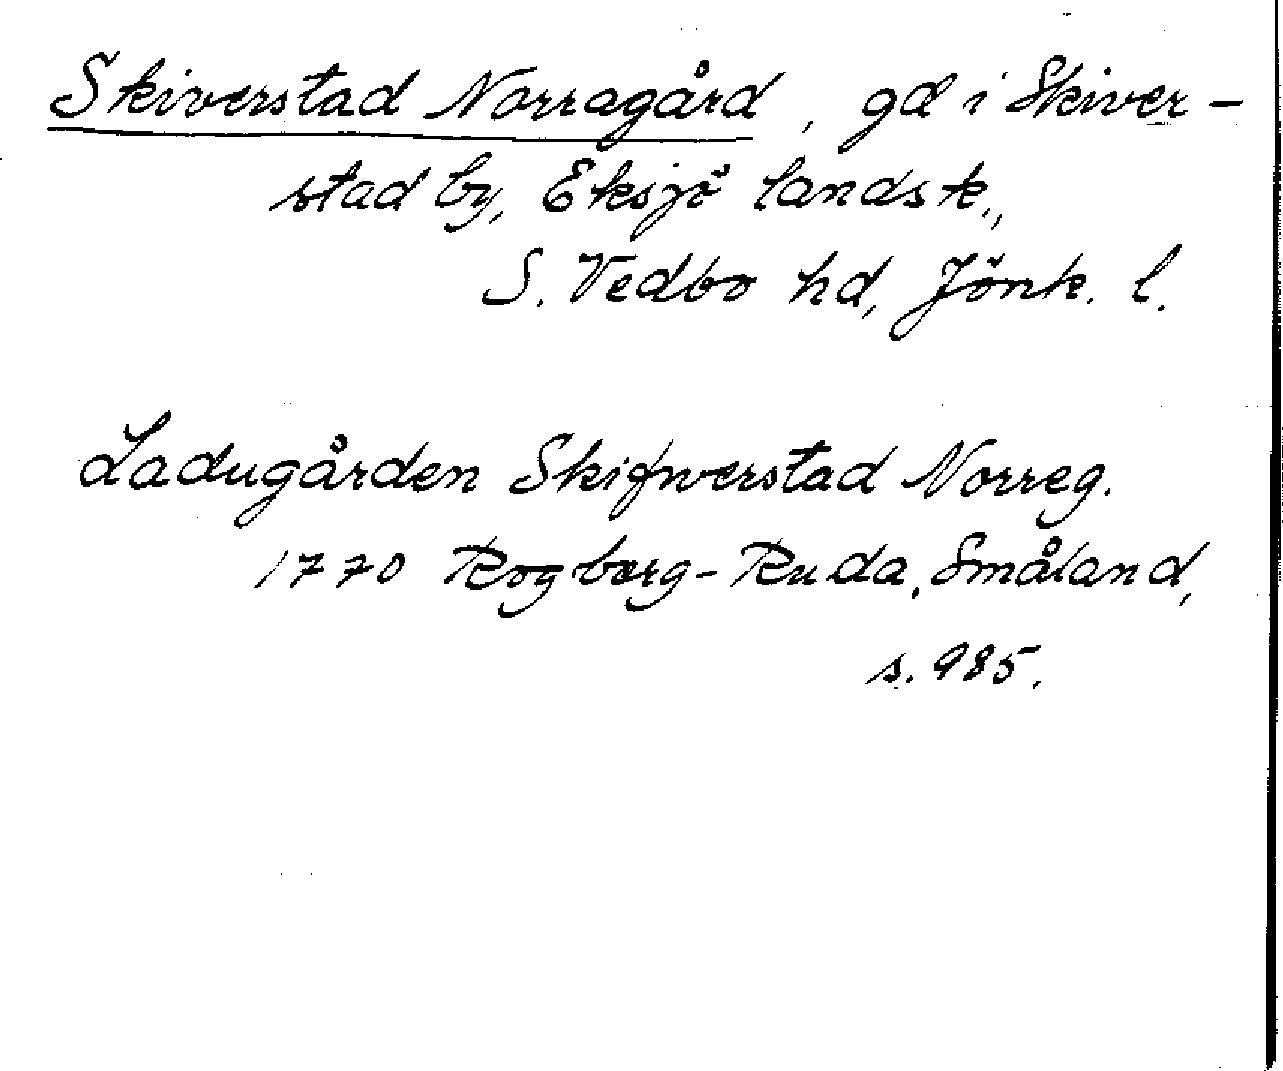 Skiverstad Norragård, gd i Skiver-
stad by, Eksjö landsk.,
S. Vedbo hd, Jönk. l.
Ladugården Skifwerstad Norreg.
1770 Rogberg-Ruda, Småland,
s. 985.